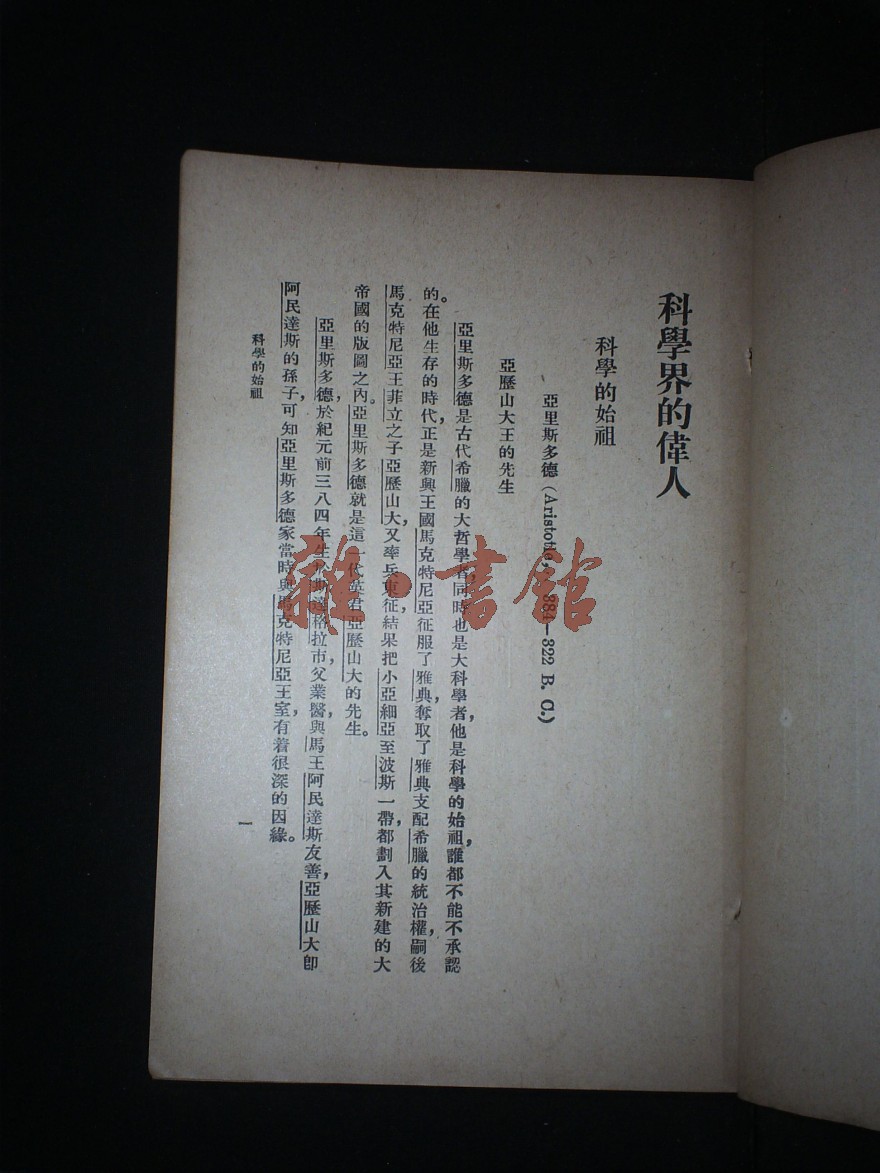 科學界的偉人
科學的始祖
亞里斯多德（Aristotle, 384—322 B. C.)
亞歷山大王的先生
亞里斯多德是古代希臘的大哲學者，同時也是大科學者，他是科學的始祖，誰都不能不承認
的。在他生存的時代，正是新興王國馬克特尼亞征服了雅典，奪取了雅典支配希臘的統治權，嗣後
馬克特尼亞王菲立之子亞歷山大，又率兵東征，結果把小亞細亞至波斯一帶，都劃入其新建的大
帝國的版圖之內。亞里斯多德就是這一代英君亞歷山大的先生。
亞里斯多德，於紀元前三八四年生於斯達格拉市，父業醫，與馬王阿民達斯友善，亞歷山大即
阿民達斯的孫子，可知亞里斯多德家當時與馬克特尼亞王室，有着很深的因緣。
科學的始祖
一
雜·書館